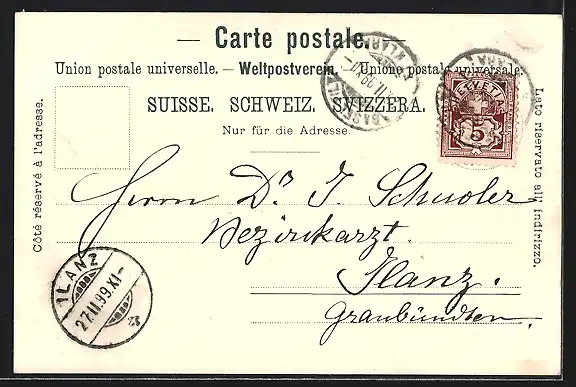 — Carte postale. —
Union postale universelle. — Weltpostverein. — Unione postale universale.
SUISSE. SCHWEIZ. SVIZZERA.
Nur für die Adresse.
Côté réservé à l'adresse.
Lato riservato all' indirizzo.
HELVETIA
5
Herrn Dr. J. Schuoler
Bezirksarzt.
Ilanz.
Graubündten.
ILANZ
27.II.99.XI-